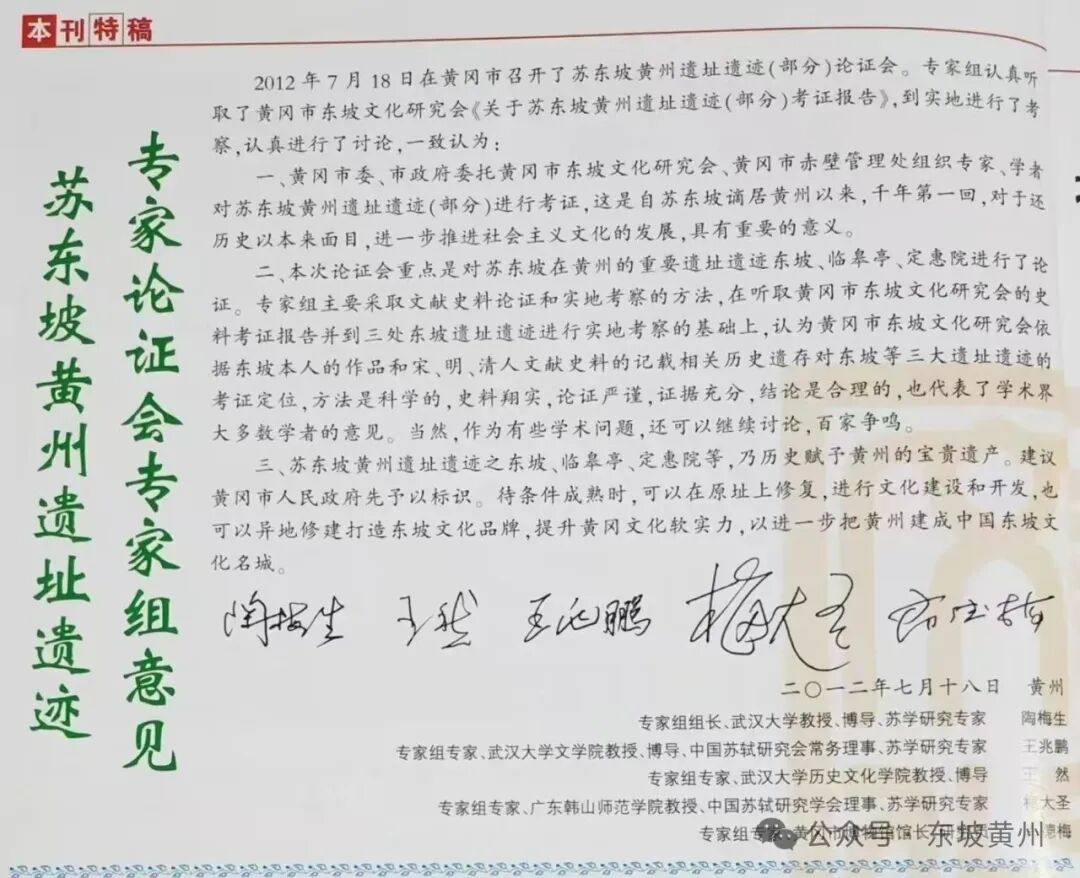 本刊特稿
苏东坡黄州遗址遗迹
专家论证会专家组意见
2012年7月18日在黄冈市召开了苏东坡黄州遗址遗迹(部分)论证会。专家组认真听
取了黄冈市东坡文化研究会《关于苏东坡黄州遗址遗迹(部分)考证报告》,到实地进行了考
察,认真进行了讨论,一致认为:
一、黄冈市委、市政府委托黄冈市东坡文化研究会、黄冈市赤壁管理处组织专家、学者
对苏东坡黄州遗址遗迹(部分)进行考证,这是自苏东坡谪居黄州以来,千年第一回,对于还
历史以本来面目,进一步推进社会主义文化的发展,具有重要的意义。
二、本次论证会重点是对苏东坡在黄州的重要遗址遗迹东坡、临皋亭、定惠院进行了论
证。专家组主要采取文献史料论证和实地考察的方法,在听取黄冈市东坡文化研究会的史
料考证报告并到三处东坡遗址遗迹进行实地考察的基础上,认为黄冈市东坡文化研究会依
据东坡本人的作品和宋、明、清人文献史料的记载相关历史遗存对东坡等三大遗址遗迹的
考证定位,方法是科学的,史料翔实,论证严谨,证据充分,结论是合理的,也代表了学术界
大多数学者的意见。当然,作为有些学术问题,还可以继续讨论,百家争鸣。
三、苏东坡黄州遗址遗迹之东坡、临皋亭、定惠院等,乃历史赋予黄州的宝贵遗产。建议
黄冈市人民政府先予以标识。待条件成熟时,可以在原址上修复,进行文化建设和开发,也
可以异地修建打造东坡文化品牌,提升黄冈文化软实力,以进一步把黄州建成中国东坡文
化名城。
陶梅生 王然 王兆鹏 梅大圣
二〇一二年七月十八日 黄州
专家组组长、武汉大学教授、博导、苏学研究专家 陶梅生
专家组专家、武汉大学文学院教授、博导、中国苏轼研究会常务理事、苏学研究专家 王兆鹏
专家组专家、武汉大学历史文化学院教授、博导 王 然
专家组专家、广东韩山师范学院教授、中国苏轼研究学会理事、苏学研究专家 梅大圣
专家组专家、黄冈市博物馆馆长 德梅
公众号 东坡黄州